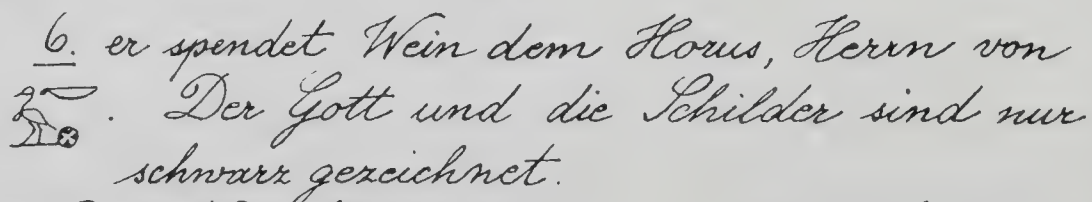 6. er spendet Wein dem Horus, Herrn von
. Der Gott und die Schilder sind nur
schwarz gezeichnet.